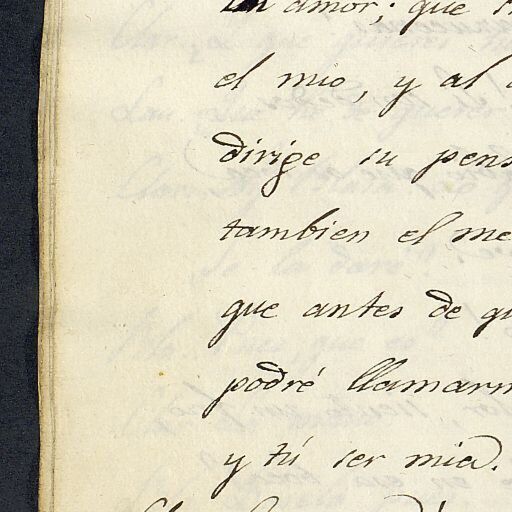 amor; que
el mio, y al
dirige su pens
tambien el me
que antes de qu
podré llamarm
y tú ser mia.